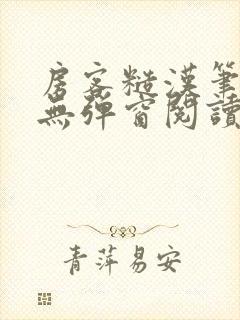 房客糙漢筆
無彈窗閱讀
青萍易安